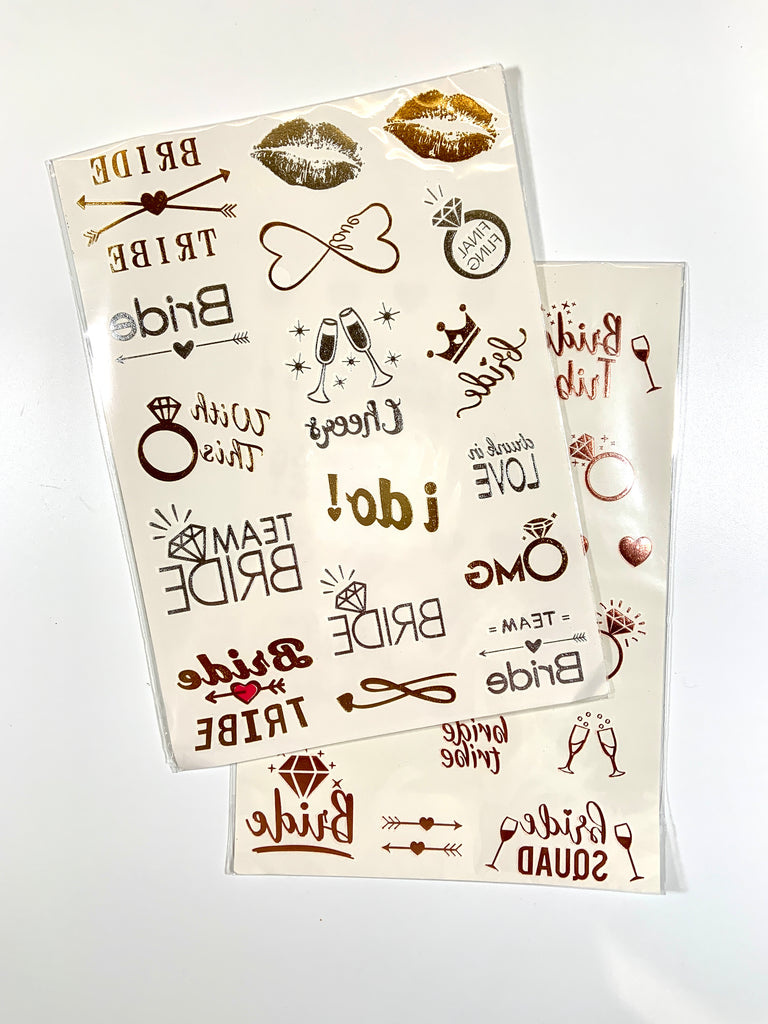 BRIDE
TRIBE
love
FINAL
FLING
Bride
Cheers
bride
With
This
drunk in
LOVE
i do!
TEAM
BRIDE
OMG
BRIDE
= TEAM =
Bride
Bride
TRIBE
Brid
Trib
bride
tribe
Bride
bride
SQUAD